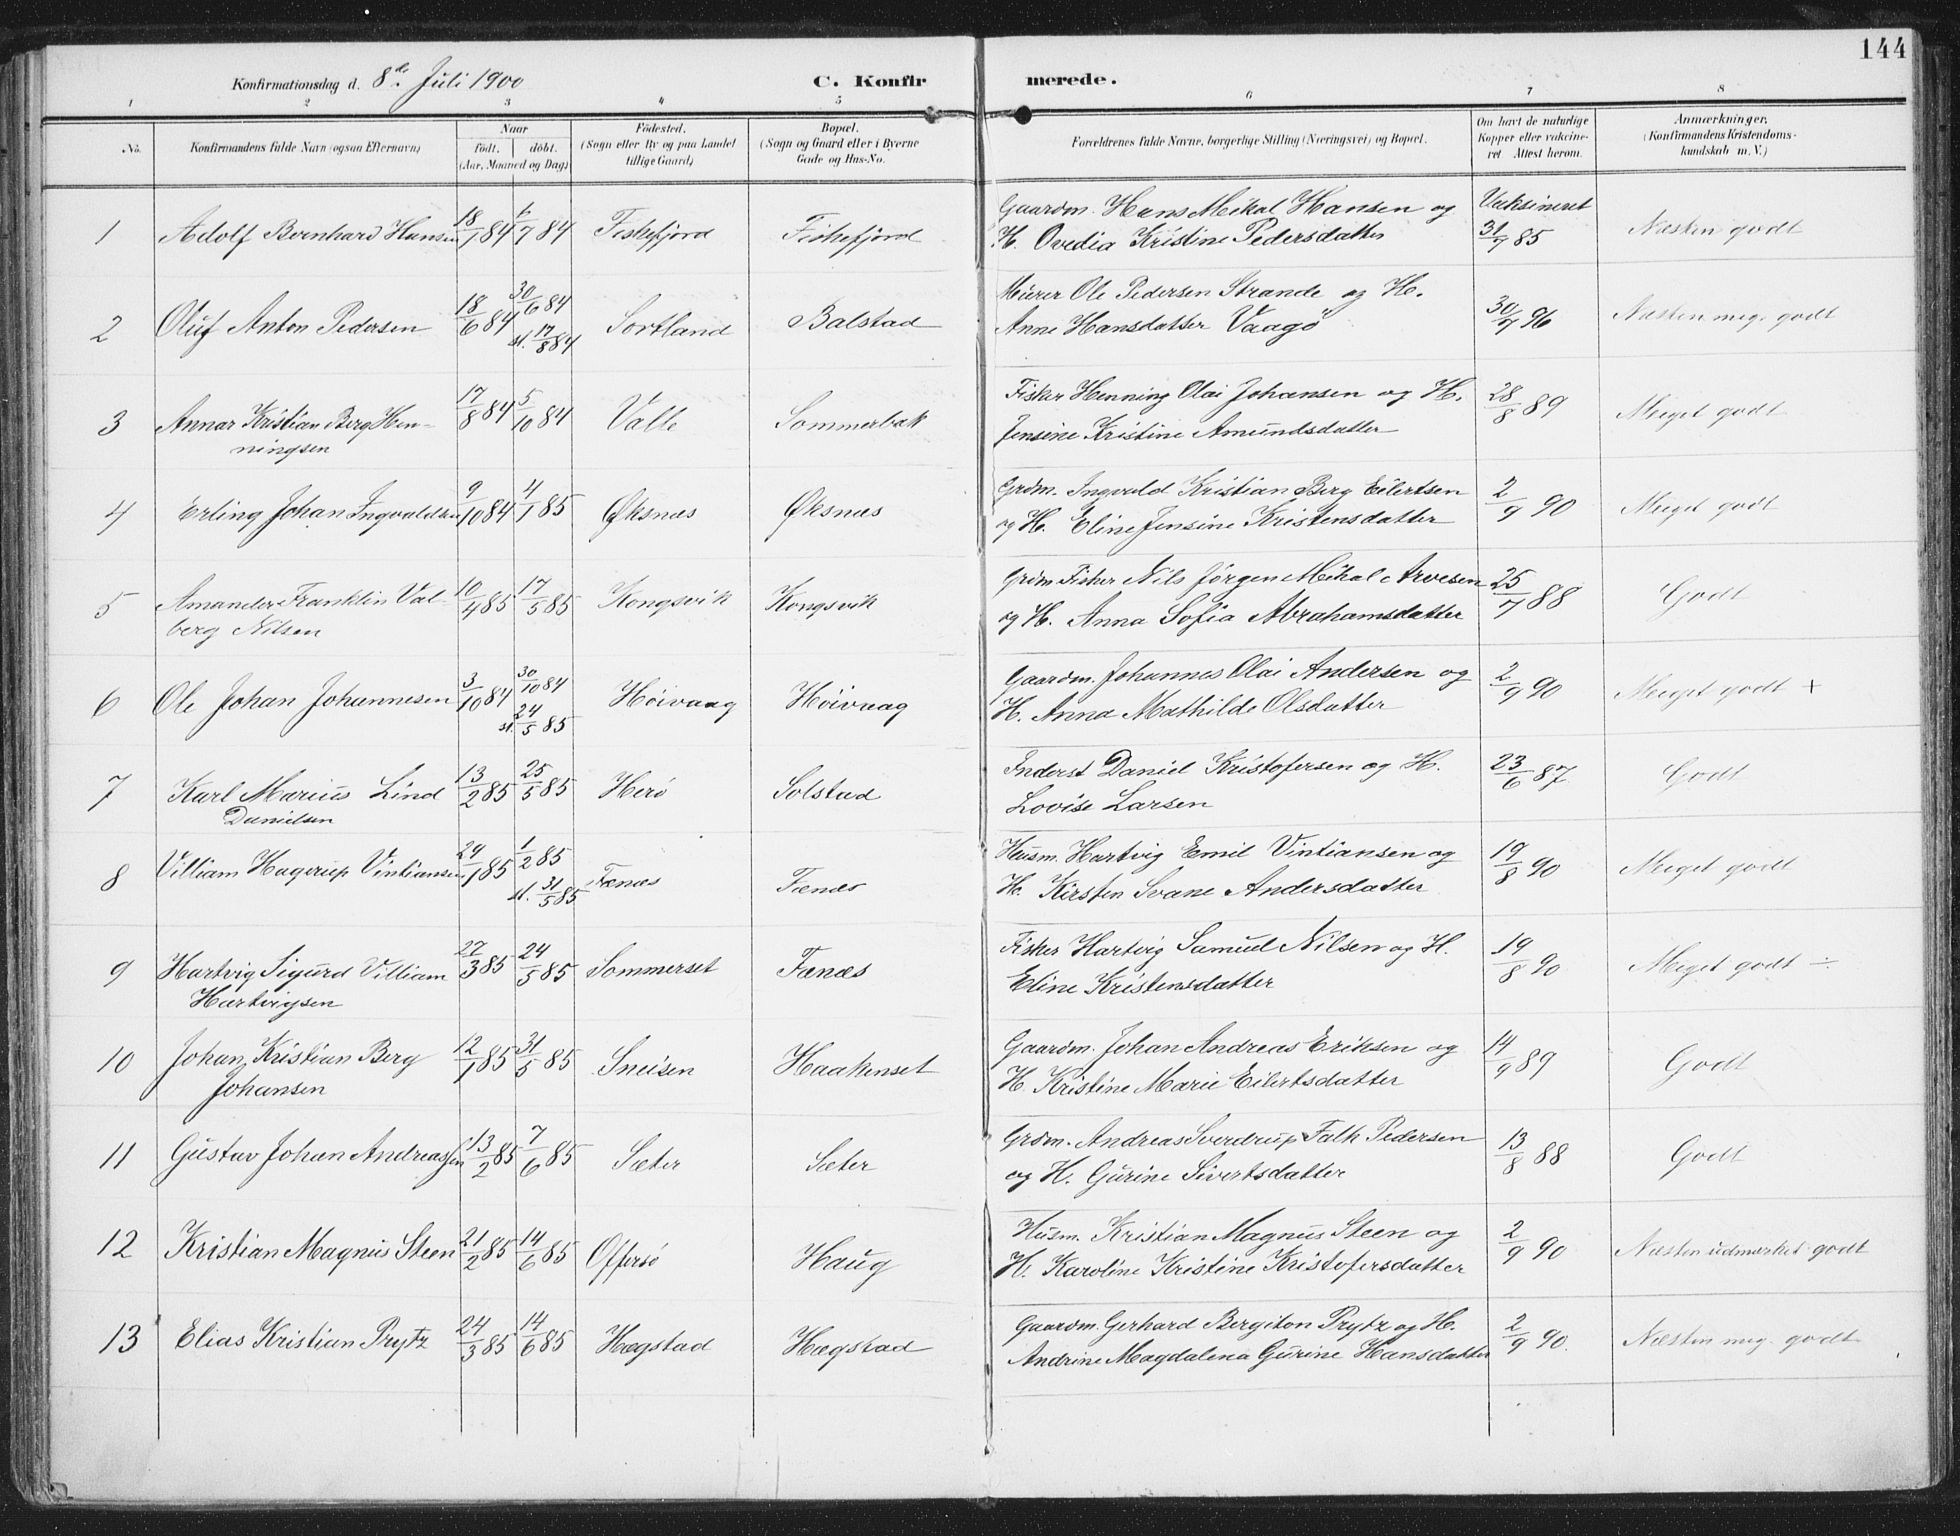 144
Konfirmationsdag d. 8de Juli 1900 C. Konfirmerede.
1 2 3 4 5 6 7 8
No. Konfirmandens fulde Navn (ogsaa Efternavn) Naar födt. döbt. (Aar, Maaned og Dag) Födested. (Sogn eller By og paa Landet tillige Gaard) Bopæl. (Sogn og Gaard eller i Byerne Gade og Hus-No. Forældrenes fulde Navne, borgerlige Stilling (Næringsvei) og Bopæl. Om havt de naturlige Kopper eller vakcineret Attest herom. Anmærkninger. (Konfirmandens Kristendomskundskab m. V.)
1 Adolf Bernhard Hansen 18/1 84 6/7 84 Fiskefjord Fiskefjord Gaardm. Hans Mikal Hansen og Vaksineret
H. Ovedia Kristine Pedersdatter 31/7 85 Næsten godt
2 Oluf Anton Pedersen 18/6 84 30/6 84 st. 17/8 84 Sortland Balstad Murer Ole Pedersen Strande og H.
Anne Hansdatter Vaagö 30/7 96 Næsten meg. godt
3 Annar Kristian Berg Hen- 17/8 84 5/10 84 Valle Sommerbak Fisker Henning Olai Johansen og H. 28/8 89 Meget godt
ningsen Jensine Kristine Amundsdatter
4 Erling Johan Ingvaldsen 9/10 84 4/1 85 Øksnæs Øksnæs Grdm. Ingvald Kristian Berg Eilertsen 2/9 90 Meget godt
og H. Eline Jensine Kristensdatter
5 Amander Franklin Val- 10/4 85 17/5 85 Kongsvik Kongsvik Grdm. Fisker Nils Jörgen Mikal Arvesen 25/7 88 Godt
berg Nilsen og H. Anna Sofia Abrahamsdatter
6 Ole Johan Johannesen 3/10 84 30/10 84 st. 24/5 85 Höivaag Höivaag Gaardm. Johannes Olai Andersen og 2/9 90 Meget godt +
H. Anna Mathilde Olsdatter
7 Karl Marius Lind 13/2 85 25/5 85 Herö Solstad Inderst Daniel Kristofersen og H. 23/6 87. Godt
Danielsen Lovise Larsen
8 Villiam Hagerup Vintiansen 24/1 85 1/2 85 st. 31/5 85 Fænæs Fænæs Husm. Hartvig Emil Vintiansen og 19/8 90 Meget godt
H. Kirsten Svane Andersdatter
9 Hartvig Sigurd Villiam 27/3 85 24/5 85 Sommerset Fænæs Fisker Hartvig Samuel Nilsen og H. 19/8 90 Meget godt ÷
Hartvigsen Eline Kristensdatter
10 Johan Kristian Berg 12/1 85 31/5 85 Sneisen Haakenset Gaardm. Johan Andreas Eriksen og 14/9 89 Godt
Johansen H. Kristine Marie Eilertsdatter
11 Gustav Johan Andreassen 13/2 85 7/6 85 Sæter Sæter Grdm. Andreas Sverdrup Falk Pedersen 13/8 88 Godt
og H. Gurine Sivertsdatter
12 Kristian Magnus Steen 21/2 85 14/6 85 Offersö Haug Husm. Kristian Magnus Steen og 2/9 90 Næsten udmærket godt
H. Karoline Kristine Kristofersdatter
13 Elias Kristian Prytz 24/3 85 14/6 85 Hægstad Hægstad Gaardm. Gerhard Bergiton Prytz og H. 2/9 90. Næsten meg. godt
Andrine Magdalena Gurine Hansdatter